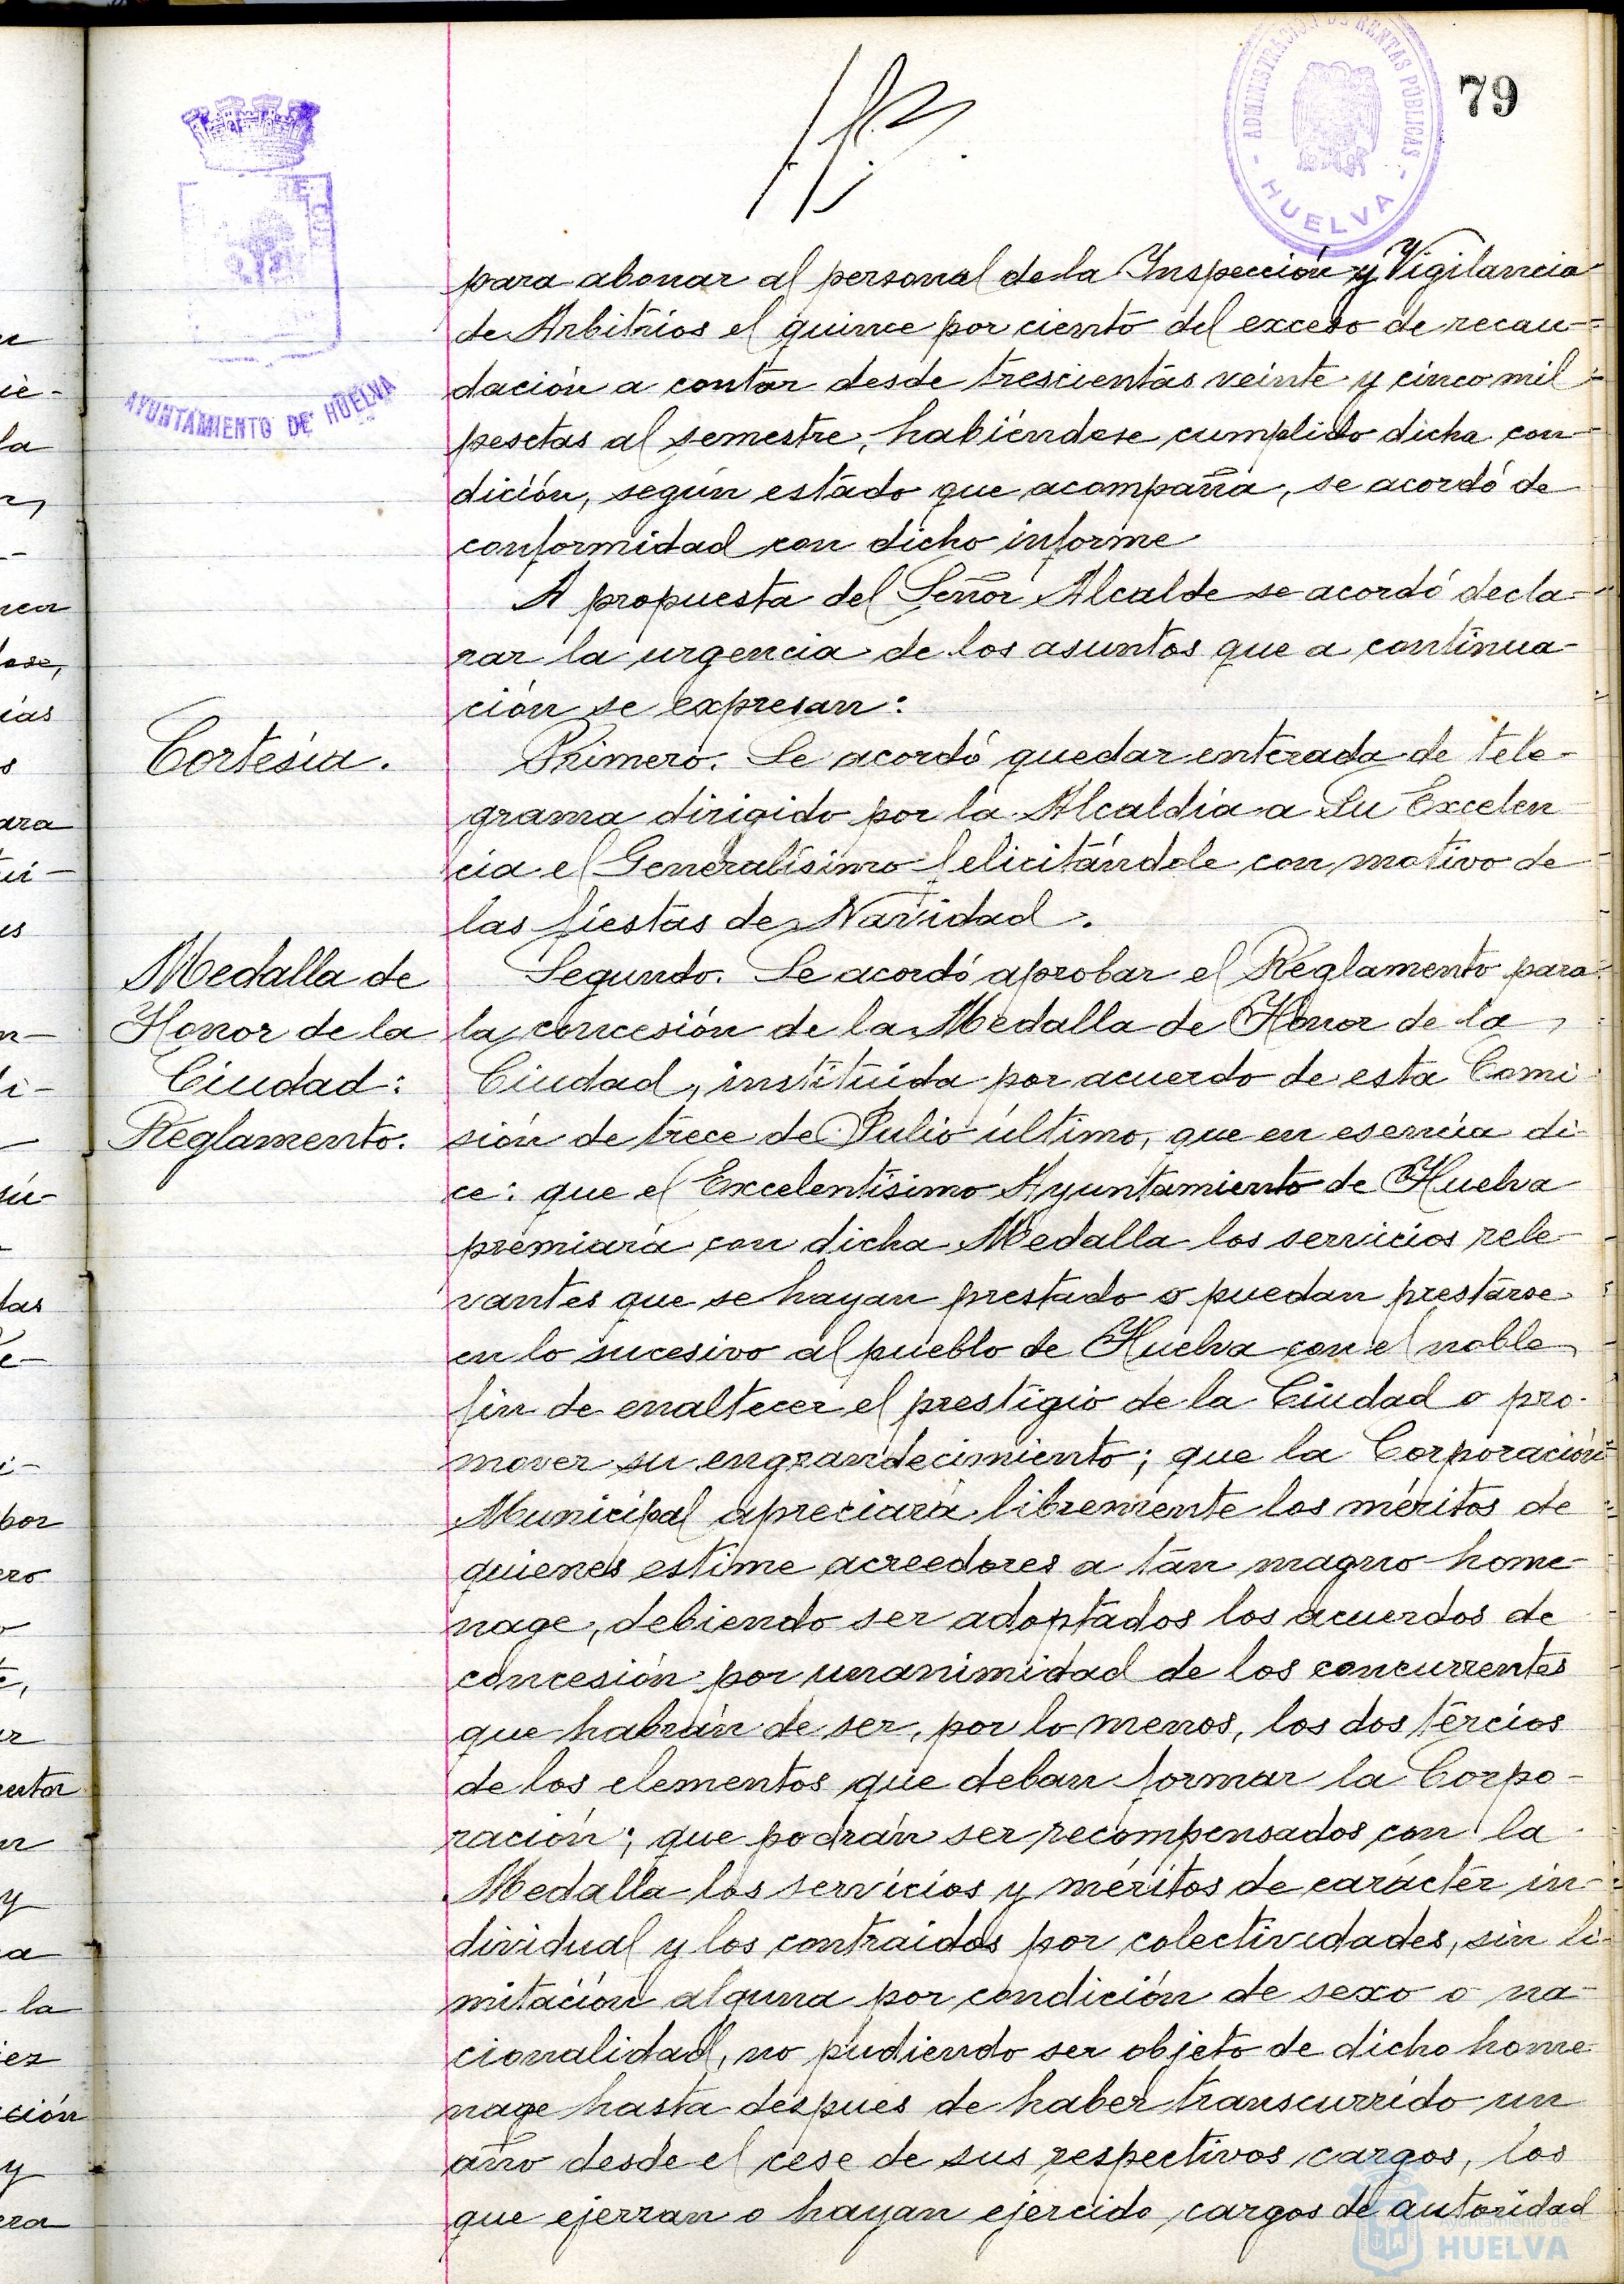 79
ADMINISTRACIÓN DE RENTAS PÚBLICAS
- HUELVA -
AYUNTAMIENTO DE HUELVA
para abonar al personal de la Inspección y Vigilancia
de Arbitrios el quince por ciento del exceso de recau-
dación a contar desde trescientas veinte y cinco mil
pesetas al semestre, habiéndose cumplido dicha con-
dición, según estado que acompaña, se acordó de
conformidad con dicho informe
A propuesta del Señor Alcalde se acordó decla-
rar la urgencia de los asuntos que a continua-
ción se expresan:
Cortesía.
Primero. Se acordó quedar enterada de tele-
grama dirigido por la Alcaldía a Su Excelen
cia el Generalísimo felicitándole con motivo de
las fiestas de Navidad.
Medalla de
Honor de la
Ciudad:
Reglamento.
Segundo. Se acordó aprobar el Reglamento para
la concesión de la Medalla de Honor de la
Ciudad, instituída por acuerdo de esta Comi
sión de trece de Julio último, que en esencia di-
ce: que el Excelentísimo Ayuntamiento de Huelva
premiará con dicha Medalla los servicios rele-
vantes que se hayan prestado o puedan prestarse
en lo sucesivo al pueblo de Huelva con el noble
fin de enaltecer el prestigio de la Ciudad o pro-
mover su engrandecimiento; que la Corporación
Municipal apreciará libremente los méritos de
quienes estime acreedores a tan magno home-
nage, debiendo ser adoptados los acuerdos de
concesión por unanimidad de los concurrentes
que habrán de ser, por lo menos, los dos tercios
de los elementos que deban formar la Corpo-
ración; que podrán ser recompensados con la
Medalla los servicios y méritos de carácter in-
dividual y los contraidos por colectividades, sin li-
mitación alguna por condición de sexo o na-
cionalidad, no pudiendo ser objeto de dicho home-
nage hasta despues de haber transcurrido un
año desde el cese de sus respectivos cargos, los
que ejerzan o hayan ejercido cargos de autoridad
Ayuntamiento de
HUELVA